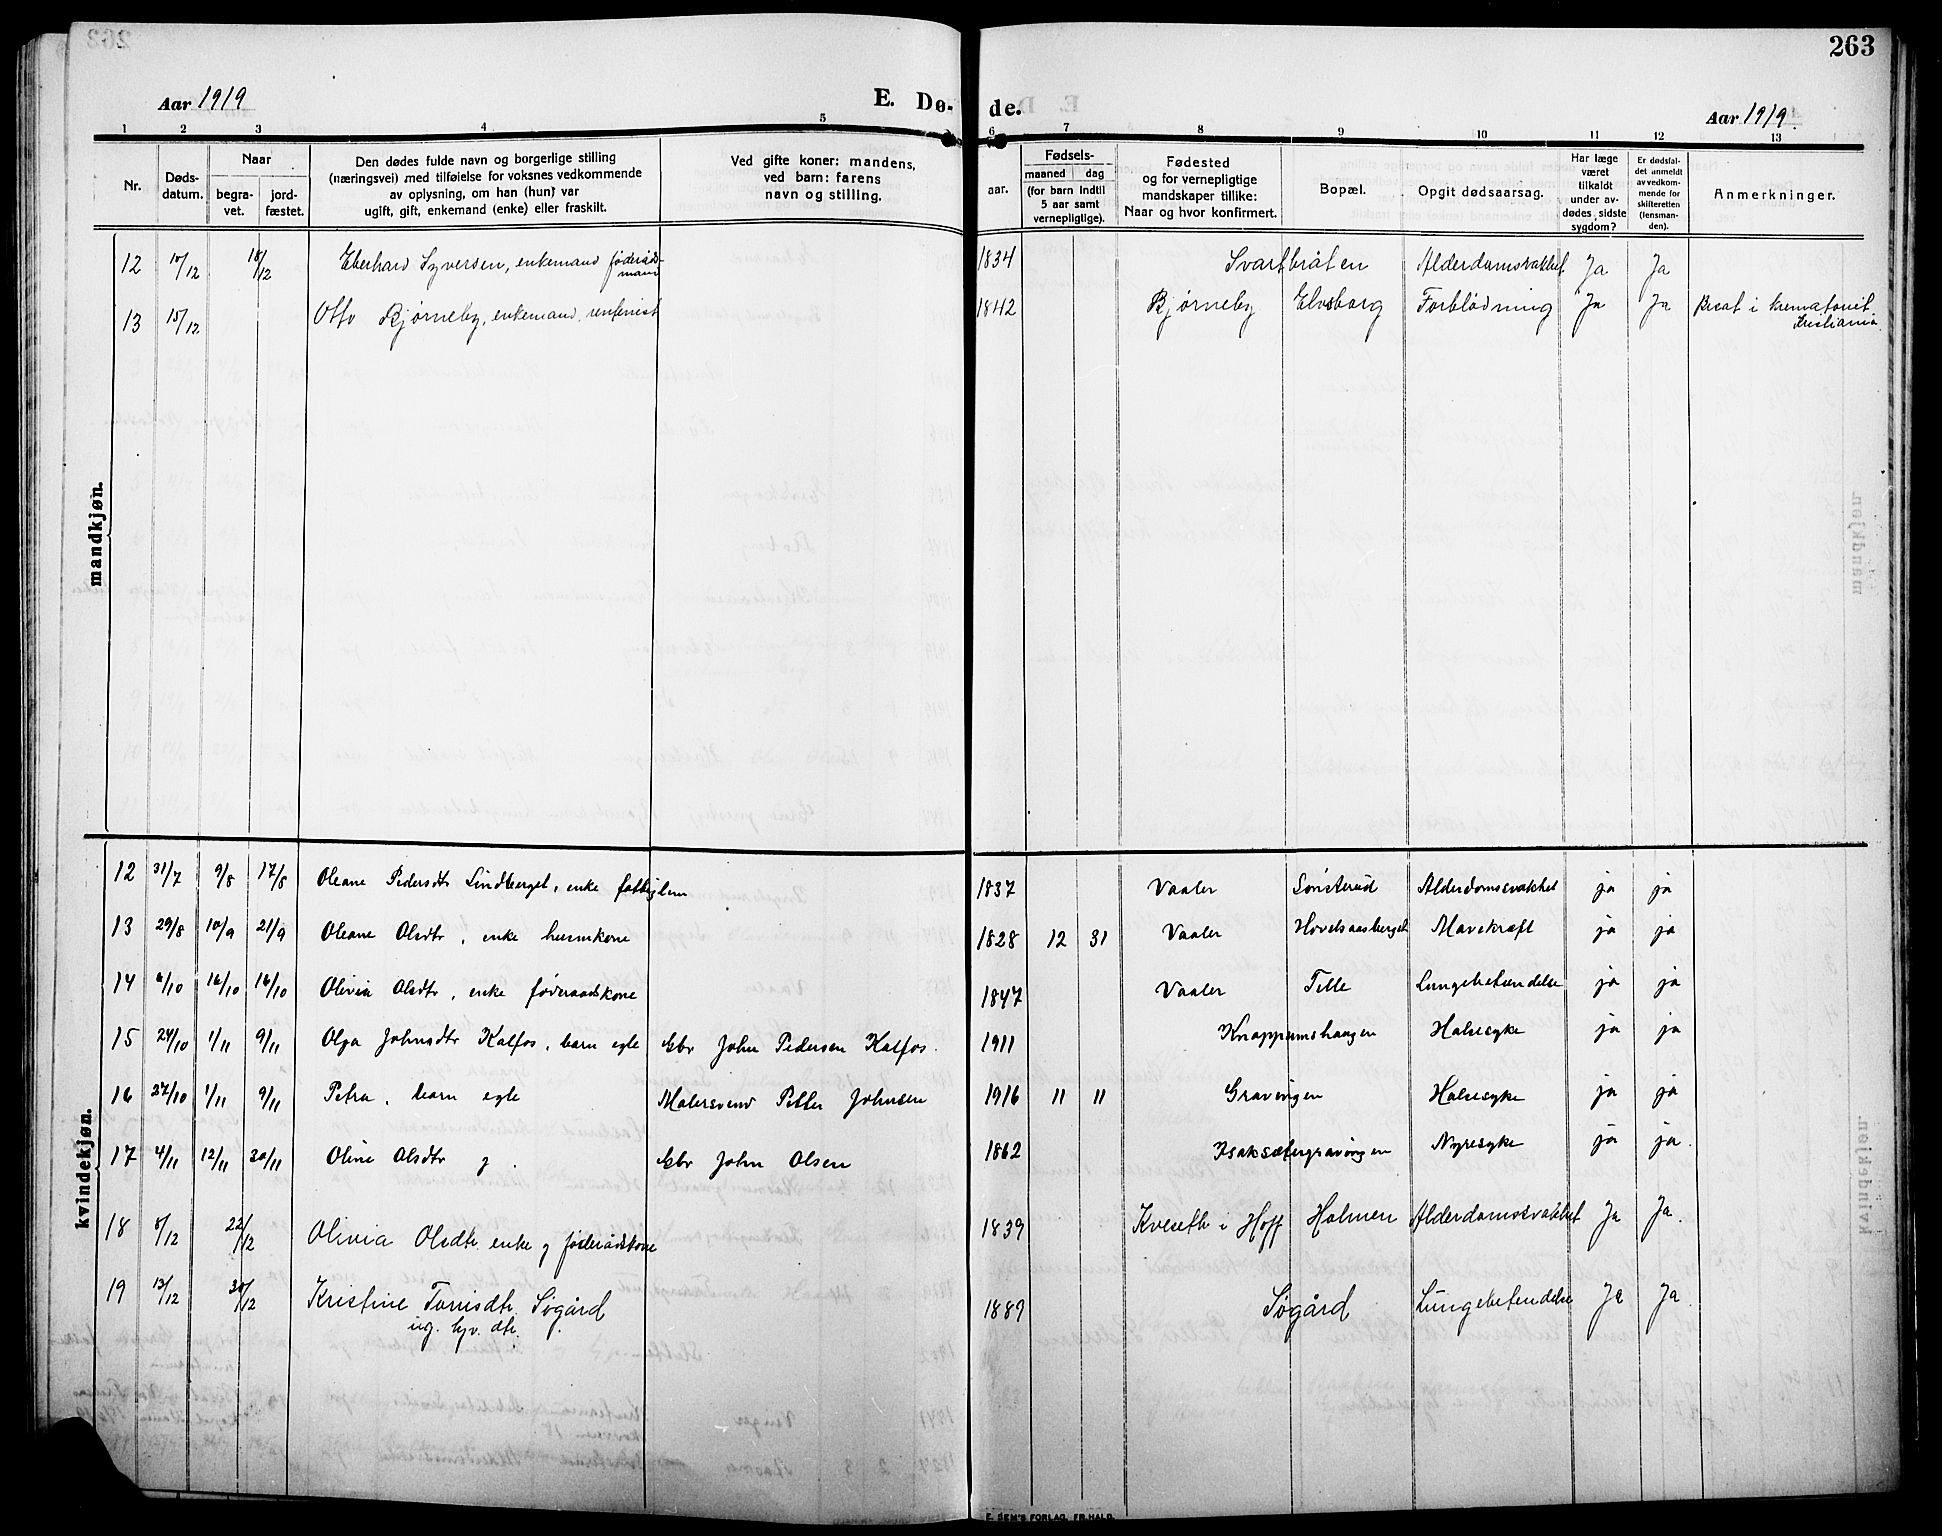 263
Aar 1919
E. Dø-
de.
Aar 1919.
1 2 3 4 5 6 7 8 9 10 11 12 13
Nr.
Døds-
datum.
Naar
begra-
vet.
jord-
fæstet.
Den dødes fulde navn og borgerlige stilling
(næringsvei) med tilføielse for voksnes vedkommende
av oplysning, om han (hun) var
ugift, gift, enkemand (enke) eller fraskilt.
Ved gifte koner: mandens,
ved barn: farens
navn og stilling.
Fødsels-
aar.
maaned dag
(for barn indtil
5 aar samt
vernepligtige).
Fødested
og for vernepligtige
mandskaper tillike:
Naar og hvor konfirmert.
Bopæl.
Opgit dødsaarsag.
Har læge
været
tilkaldt
under av-
dødes sidste
sygdom?
Er dødsfal-
det anmeldt
av vedkom-
mende for
skifteretten
(lensman-
den).
Anmerkninger.
mandkjøn.
12 10/12 18/12 Eberhard Syversen, enkemand føderåds-
mand 1834 Svartbråten Alderdomssvakhet Ja Ja
13 15/12 Otto Bjørneby, enkemand, rentenist 1842 Bjørneby Elvsborg Forblødning Ja Ja Besat i krematoriet
Kristiania
kvindekjøn.
12 31/7 9/8 17/8 Oleane Pedersdtr Lindberget, enke fattiglem 1837 Vaaler Sönsterud Alderdomssvakhet ja ja
13 29/8 10/9 21/9 Oleane Olsdtr, enke husmkone 1828 12 31 Vaaler Hovelsaasberget Mavekræft ja ja
14 6/10 16/10 16/10 Olivia Olsdtr, enke føderaadskone 1847 Vaaler Telle Lungebetændelse ja ja
15 24/10 1/11 9/11 Olga Johnsdtr Kalfos, barn egte Gbr John Pedersen Kalfos. 1911 Knappumshaugen Halsesyke ja ja
16 27/10 1/11 9/11 Petra, barn egte Malersvend Petter Johnsen 1916 11 11 Gravingen Halsesyke ja ja
17 4/11 12/11 30/11 Oline Olsdtr g. Gbr John Olsen 1862 Isaksætergravingen Nyresyke ja ja.
18 8/12 22/12 Olivia Olsdtr. enke g føderådskone 1839 Kveseth i Hoff Holmen Alderdomssvakhet Ja Ja.
19 13/12 30/12 Kristine Tonisdtr. Søgård
ug. hjv. dtr. 1889 Søgård Lungebetendelse Ja Ja.
E. SEM'S FORLAG, FR.HALD.